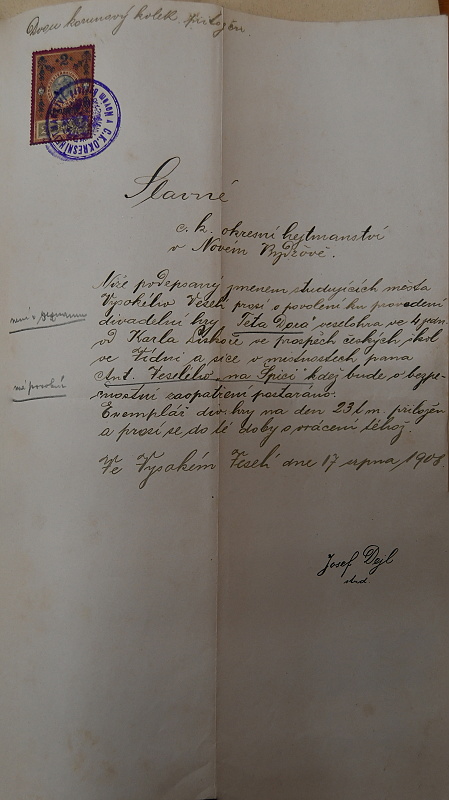 Dvou korunový kolek přiložen.
2
C.K. OKRESNÍ
Slavné
c. k. okresní hejtmanství
v Novém Bydžově.
Níže podepsaný jmenem studujících města
Vysokého Veselí prosí o povolení ku provodení
divadelní hry „Teta Dora" veselohra ve 4 jedn.
od Karla Liškovce ve prospěch českých škol
ve Vídni a sice v místnostech pana
Ant. Veselého „na Špici" kdež bude o bezpe-
nostní zaopatření postaráno.
Exemplář div. hry na den 23 t. m. přiložen
a prosí se do té doby o vrácení téhož.
Ve Vysokém Veselí dne 17 srpna 1908.
Josef Dejl
stud